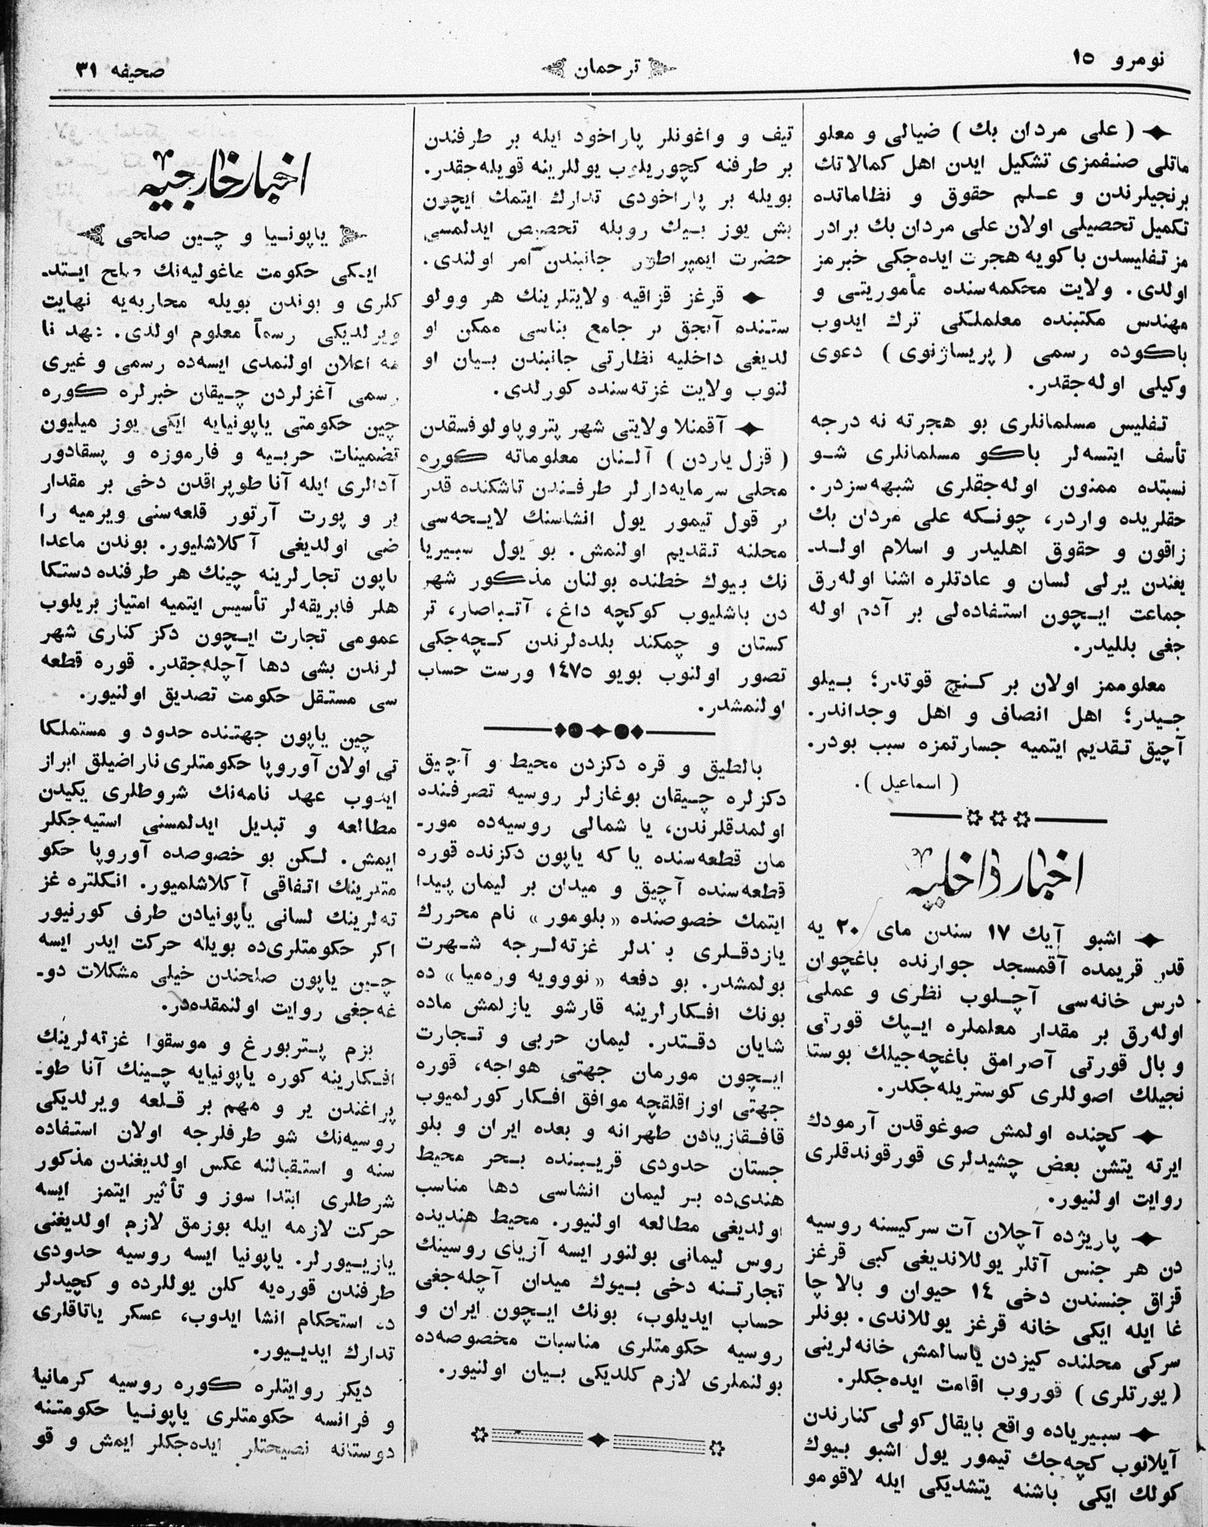 نومرو ١٥
ترجمان
صحيفه ٣١
( على مردان بك ) ضيالى و معلو
ماتلى صنفمزى تشكيل ايدن اهل كمالاتك
برنجيلرندن و علم حقوق و نظاماتده
تكميل تحصيلى اولان على مردان بك برادر
مز تفليسدن باكويه هجرت ايده‌جكى خبرمز
اولدى. ولايت محكمه‌سنده مأموريتى و
مهندس مكتبنده معلملكى ترك ايدوب
باكوده رسمى ( پريساژنوى ) دعوى
وكيلى اوله‌جقدر.
تفليس مسلمانلرى بو هجرته نه درجه
تأسف ايتسه‌لر باكو مسلمانلرى شو
نسبتده ممنون اوله‌جقلرى شبهه‌سزدر.
حقلريده واردر، چونكه على مردان بك
زاقون و حقوق اهليدر و اسلام اولد‌ـ
يغندن يرلى لسان و عادتلره اشنا اوله‌رق
جماعت ايچون استفاده‌لى بر آدم اوله
جغى بلليدر.
معلوممز اولان بر كنج قوتدر؛ بيلو
جيدر؛ اهل انصاف و اهل وجداندر.
آچيق تقديم ايتميه جسارتمزه سبب بودر.
( اسماعيل ).
اخبار داخليه
اشبو آيك ١٧ سندن ماى ٢٠ يه
قدر قريمده آقمسجد جوارنده باغچوان
درس خانه‌سى آچلوب نظرى و عملى
اوله‌رق بر مقدار معلملره ايپك قورتى
و بال قورتى آصرامق باغچه‌جيلك بوستا
نجيلك اصوللرى كوستريله‌جكدر.
كچنده اولمش صوغوقدن آرمودك
ايرته يتشن بعض چشيدلرى قورقوندقلرى
روايت اولنيور.
پاريژده آچلان آت سركيسنه روسيه
دن هر جنس آتلر يوللانديغى كبى قرغز
قزاق جنسندن دخى ١٤ حيوان و بالا چا
غا ايله ايكى خانه قرغز يوللاندى. بونلر
سركى محلنده كيزدن ياسالمش خانه‌لرينى
( يورتلرى ) قوروب اقامت ايده‌جكلر.
سبيرياده واقع بايقال كولى كنارندن
آيلانوب كچه‌جك تيمور يول اشبو بيوك
كولك ايكى باشنه يتشديكى ايله لاقومو
تيف و واغونلر پاراخود ايله بر طرفندن
بر طرفنه كچوريلوب يوللرينه قويله‌جقدر.
بويله بر پاراخودى تدارك ايتمك ايچون
بش يوز بيك روبله تحصيص ايدلمسى
حضرت ايمپراطور جانبندن آمر اولندى.
قرغز قزاقيه ولايتلرينك هر وولو
ستنده آنجق بر جامع بناسى ممكن او
لديغى داخليه نظارتى جانبندن بيان او
لنوب ولايت غزته‌سنده كورلدى.
آقمنلا ولايتى شهر پتروپاولوفسقدن
( قزل ياردن ) آلنان معلوماته كوره
محلى سرمايه‌دارلر طرفندن تاشكنده قدر
بر قول تيمور يول انشاسنك لايحه‌سى
محلنه تقديم اولنمش. بو يول سبيريا
نك بيوك خطنده بولنان مذكور شهر
دن باشليوب كوكچه داغ، آتباصار، تر
كستان و چمكند بلده‌لرندن كچه‌جكى
تصور اولنوب بويو ١٤٧٥ ورست حساب
اولنمشدر.
بالطيق و قره دكزدن محيط و آچيق
دكزلره چيقان بوغازلر روسيه تصرفنده
اولمدقلرندن، يا شمالى روسيه‌ده مور‌ـ
مان قطعه‌سنده يا كه ياپون دكزنده قوره
قطعه‌سنده آچيق و ميدان بر ليمان پيدا
ايتمك خصوصنده «بلومور» نام محررك
يازدقلرى بندلر غزته‌لرجه شهرت
بولمشدر. بو دفعه «نوويه وره‌ميا» ده
بونك افكارلرينه قارشو يازلمش ماده
شايان دقتدر. ليمان حربى و تجارت
ايچون مورمان جهتى هواجه، قوره
جهتى اوزاقلقچه موافق افكار كورلميوب
قافقازيادن طهرانه و بعده ايران و بلو
جستان حدودى قريبنده بحر محيط
هندى‌ده بر ليمان انشاسى دها مناسب
اولديغى مطالعه اولنيور. محيط هنديده
روس ليمانى بولنور ايسه آزياى روسينك
تجارتنه دخى بيوك ميدان آچله‌جغى
حساب ايديلوب، بونك ايچون ايران و
روسيه حكومتلرى مناسبات مخصوصه‌ده
بولنملرى لازم كلديكى بيان اولنيور.
اخبار خارجيه
ياپونيا و چين صلحى
ايكى حكومت ماغوليه‌نك صلح ايتد‌ـ
كلرى و بوندن بويله محاربه‌يه نهايت
ويرلديكى رسماً معلوم اولدى. عهد نا
مه اعلان اولنمدى ايسه‌ده رسمى و غيرى
رسمى آغزلردن چيقان خبرلره كوره
چين حكومتى ياپونيايه ايكى يوز ميليون
تضمينات حربيه و فارموزه و پسقادور
آدالرى ايله آنا طوپراقدن دخى بر مقدار
ير و پورت آرتور قلعه‌سنى ويرميه را
ضى اولديغى آكلاشليور. بوندن ماعدا
ياپون تجارلرينه چينك هر طرفنده دستكا
هلر فابريقه‌لر تأسيس ايتميه امتياز بريلوب
عمومى تجارت ايچون دكز كنارى شهر
لرندن بشى دها آچله‌جقدر. قوره قطعه
سى مستقل حكومت تصديق اولنيور.
چين ياپون جهتنده حدود و مستملكا
تى اولان آوروپا حكومتلرى ناراضيلق ابراز
ايدوب عهد نامه‌نك شروطلرى يكيدن
مطالعه و تبديل ايدلمسنى استيه‌جكلر
ايمش. لكن بو خصوصده آوروپا حكو
متلرينك اتفاقى آكلاشلميور. انكلتره غز
ته‌لرينك لسانى ياپونيادن طرف كورنيور
اكر حكومتلرى‌ده بويله حركت ايدر ايسه
چين ياپون صلحندن خيلى مشكلات دو‌ـ
غه‌جغى روايت اولنمقده‌در.
بزم پتربورغ و موسقوا غزته‌لرينك
افكارينه كوره ياپونيايه چينك آنا طو‌ـ
پراغندن ير و مهم بر قلعه ويرلديكى
روسيه‌نك شو طرفلرجه اولان استفاده
سنه و استقبالنه عكس اولديغندن مذكور
شرطلرى ابتدا سوز و تأثير ايتمز ايسه
حركت لازمه ايله بوزمق لازم اولديغنى
يازيورلر. ياپونيا ايسه روسيه حدودى
طرفندن قوره‌يه كلن يوللرده و كچيدلر
ده استحكام انشا ايدوب، عسكر ياتاقلرى
تدارك ايديور.
ديكر روايتلره كوره روسيه كرمانيا
و فرانسه حكومتلرى ياپونيا حكومتنه
دوستانه نصيحتلر ايده‌جكلر ايمش و قو